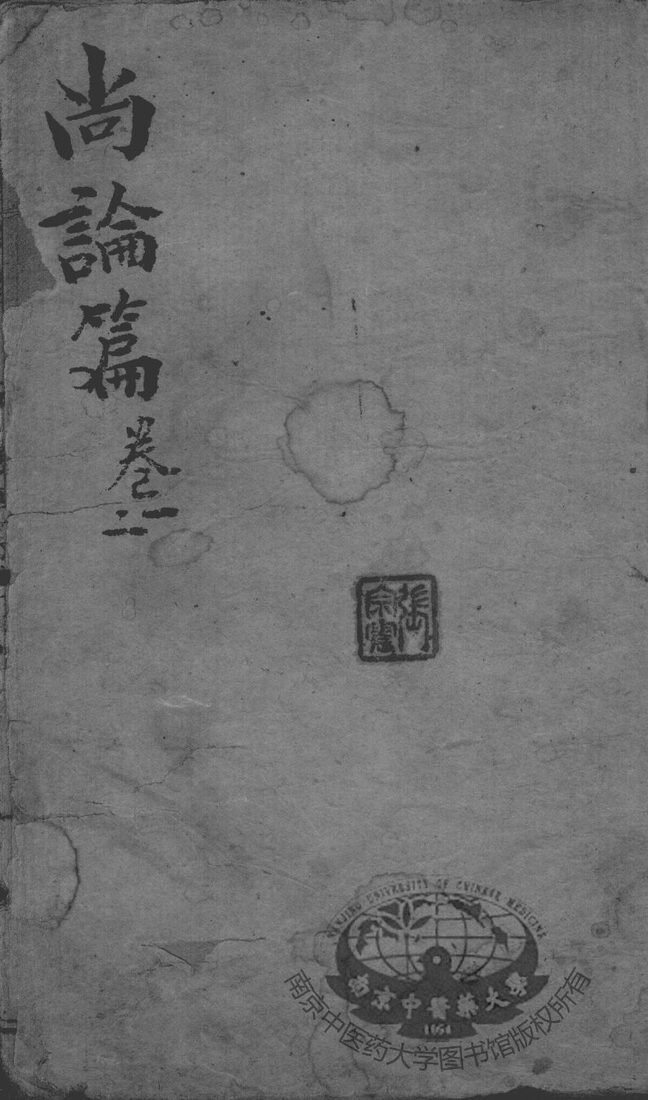 尚論篇卷二
NANJING UNIVERSITY OF CHINESE MEDICINE
南京中醫藥大學
1954
南京中医药大学图书馆版权所有